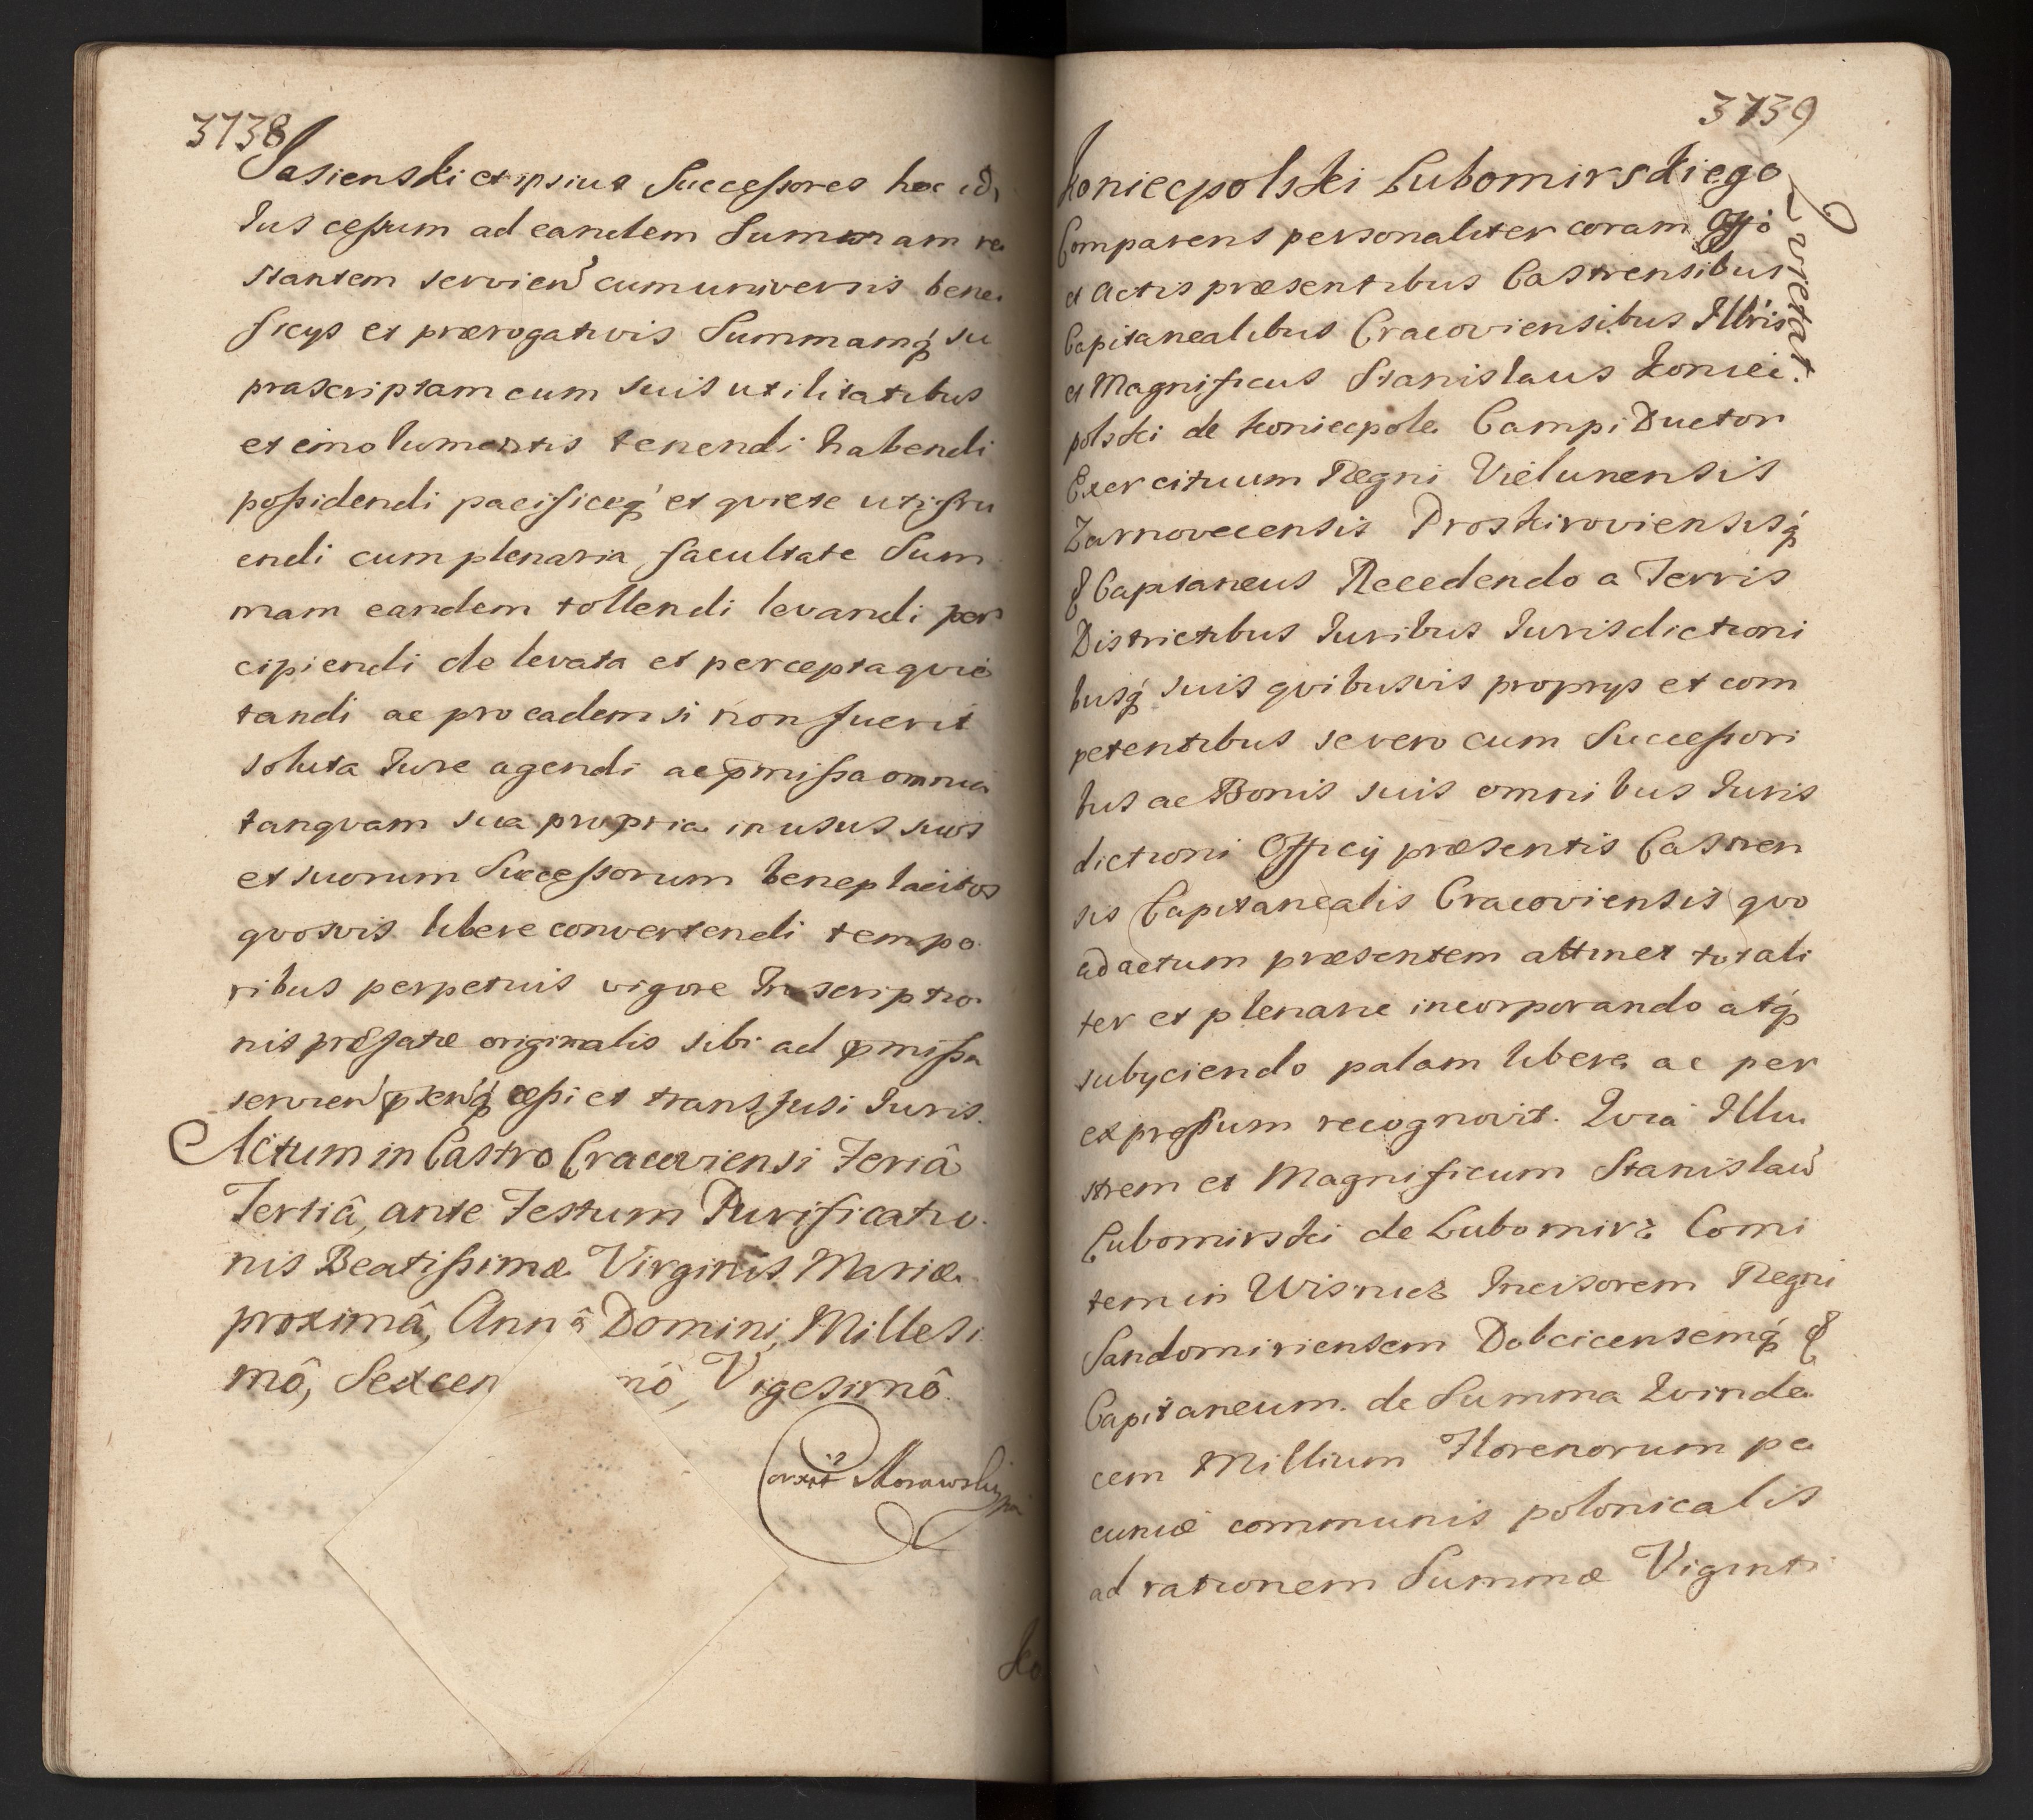 3738
Jasienski et ipsius Successores hoc id
Jus cessum ad eandem Summam re
stantem servien cum universis bene
ficys et prærogativis Summamq́ su
prascriptam cum suis utilitatibus
et emolumentis tenendi habendi
possidendi pacificeq́ et qviete uti fru
endi cum plenaria facultate Sum
mam eandem tollendi levandi per
cipiendi de levata et percepta qvie
tandi ac pro eadem si non fuerit
soluta Jure agendi ac p̄missa omnia
tanqvam sua propria in usus suos
et suorum Successorum beneplacitos
qvosvis libere convertendi tempo
ribus perpetuis vigore Inscriptio
nis præfatæ originalis sibi ad p̄missa
servien p̄senq́ cessi et transfusi Juris.
Actum in Castro Cracoviensi Feriâ
Tertiâ, ante Festum Purificatio
nis Beatissimæ Virginis Mariæ
proximâ, Annô Domini, Millesi
mô, Sexcen mô, Vigesimô.
Morawski
Ko
3739
Koniecpolski Lubomirskiego
Qvietat.
Comparens personaliter coram Offo
et Actis præsentibus Castrensibus
Capitanealibus Cracoviensibus Illris
et Magnificus Stanislaus Koniec.
polski de Koniecpole Campi Ductor
Exercituum Regni Vielunensis
Zarnovecensis Proskiroviensisq́
& Captaneus Recedendo a Terris
Districtibus Juribus Jurisdictioni
busq́ suis qvibusvis proprys et com
petentibus se vero cum Successori
bus ac Bonis suis omnibus Juris
dictioni Officÿ præsentis Castren
sis Capitanealis Cracoviensis qvo
ad actum præsentem attinet totali
ter et plenarie incorporando atq́
subyciendo palam libere ac per
expressum recognovit. Qvia Illu
strem et Magnificum Stanislaū
Lubomirski de Lubomirz Comi
tem in Wisnicz Incisorem Regni
Sandomiriensem Dobcicensemq́ &
Capitaneum. de Summa Qvinde
cem Millium Florenorum pe
cuniæ communis polonicalis
ad rationem Summæ Viginti